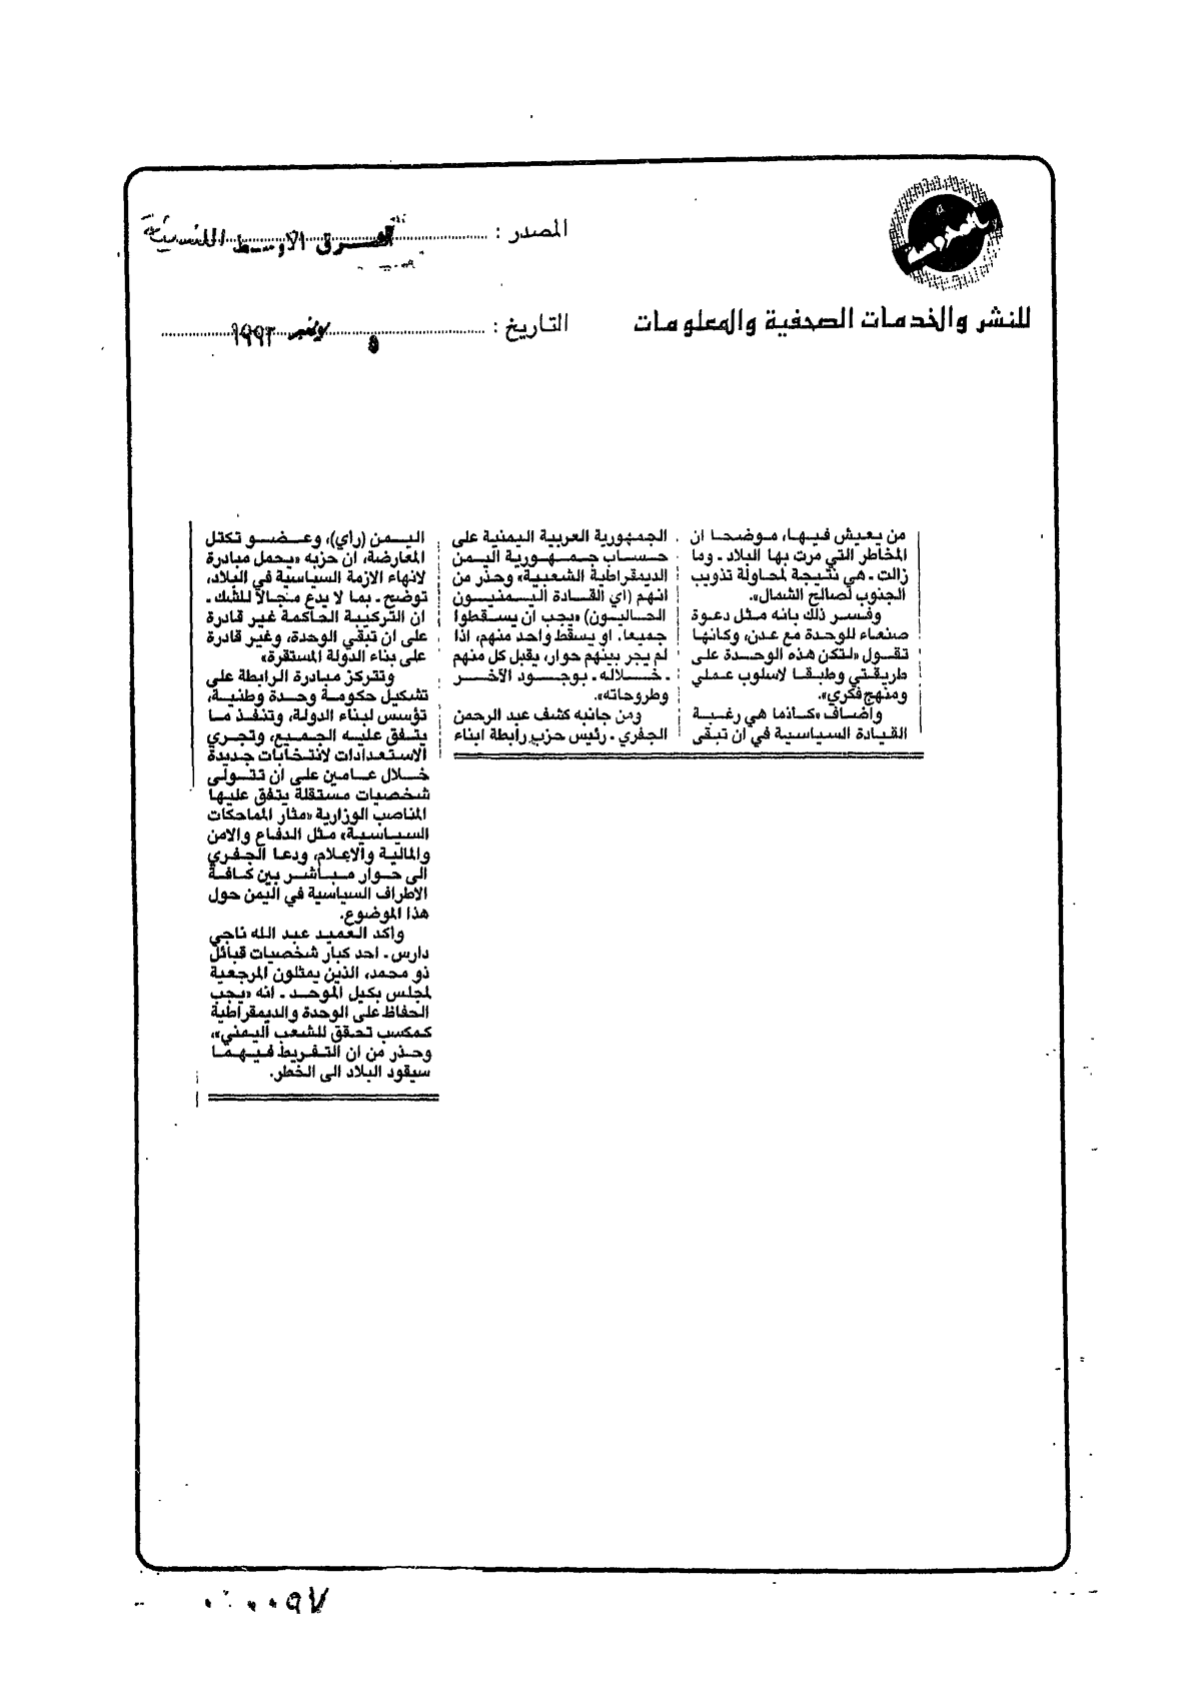 المصدر : الشرق الاوسط اللندنية
للنشر والخدمات الصحفية والمعلومات
التاريخ : ٩ نوفمبر ١٩٩٣
من يعيش فيها، موضحا ان
المخاطر التي مرت بها البلاد - وما
زالت - هي نتيجة لمحاولة تذويب
الجنوب لصالح الشمال».
وفسر ذلك بانه مثل دعوة
صنعاء للوحدة مع عدن، وكانها
تقول «لتكن هذه الوحدة على
طريقتي وطبقا لاسلوب عملي
ومنهج فكري».
واضاف «كانما هي رغبة
القيادة السياسية في ان تبقى
الجمهورية العربية اليمنية على
حساب جمهورية اليمن
الديمقراطية الشعبية» وحذر من
انهم (اي القادة اليمنيون
الحاليون) «يجب ان يسقطوا
جميعا، او يسقط واحد منهم، اذا
لم يجر بينهم حوار، يقبل كل منهم
- خلاله - بوجود الآخر
وطروحاته».
ومن جانبه كشف عبد الرحمن
الجفري - رئيس حزب رابطة ابناء
اليمن (رأي)، وعضو تكتل
المعارضة، ان حزبه «يحمل مبادرة
لانهاء الازمة السياسية في البلاد،
توضح - بما لا يدع مجالا للشك -
ان التركيبة الحاكمة غير قادرة
على ان تبقي الوحدة، وغير قادرة
على بناء الدولة المستقرة»
وتتركز مبادرة الرابطة على
تشكيل حكومة وحدة وطنية،
تؤسس لبناء الدولة، وتنفذ ما
يتفق عليه الجميع، وتجري
الاستعدادات لانتخابات جديدة
خلال عامين على ان تتولى
شخصيات مستقلة يتفق عليها
المناصب الوزارية «مثار المماحكات
السياسية» مثل الدفاع والامن
والمالية والاعلام، ودعا الجفري
الى حوار مباشر بين كافة
الاطراف السياسية في اليمن حول
هذا الموضوع.
واكد العميد عبد الله ناجي
دارس - احد كبار شخصيات قبائل
ذو محمد، الذين يمثلون المرجعية
لمجلس بكيل الموحد - انه «يجب
الحفاظ على الوحدة والديمقراطية
كمكسب تحقق للشعب اليمني»،
وحذر من ان التفريط فيهما
سيقود البلاد الى الخطر.